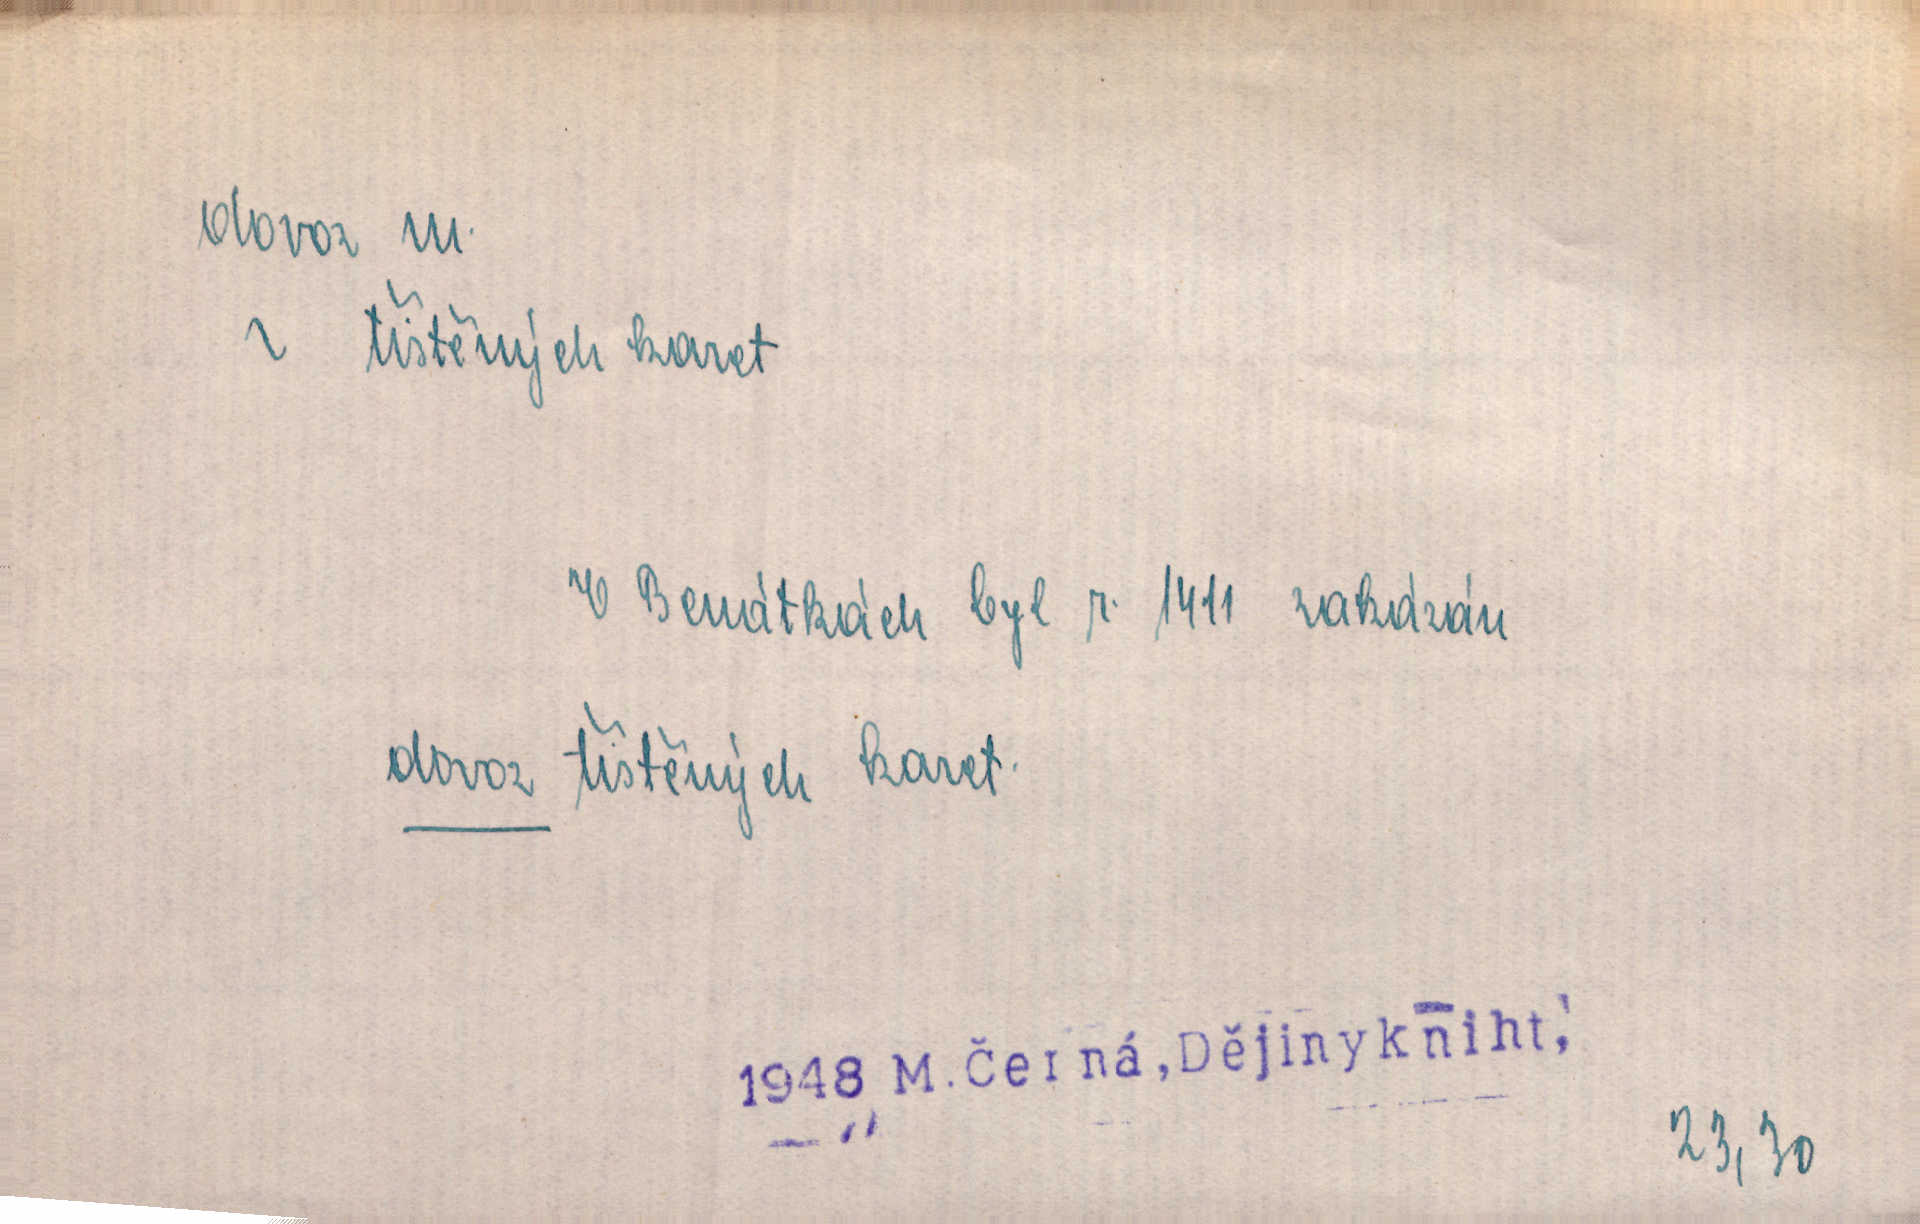 dovoz m.
~ tištěných karet
V Benátkách byl r. 1411 zakázán
dovoz tištěných karet.
1948 M.Černá,Dějinykniht,
23,30